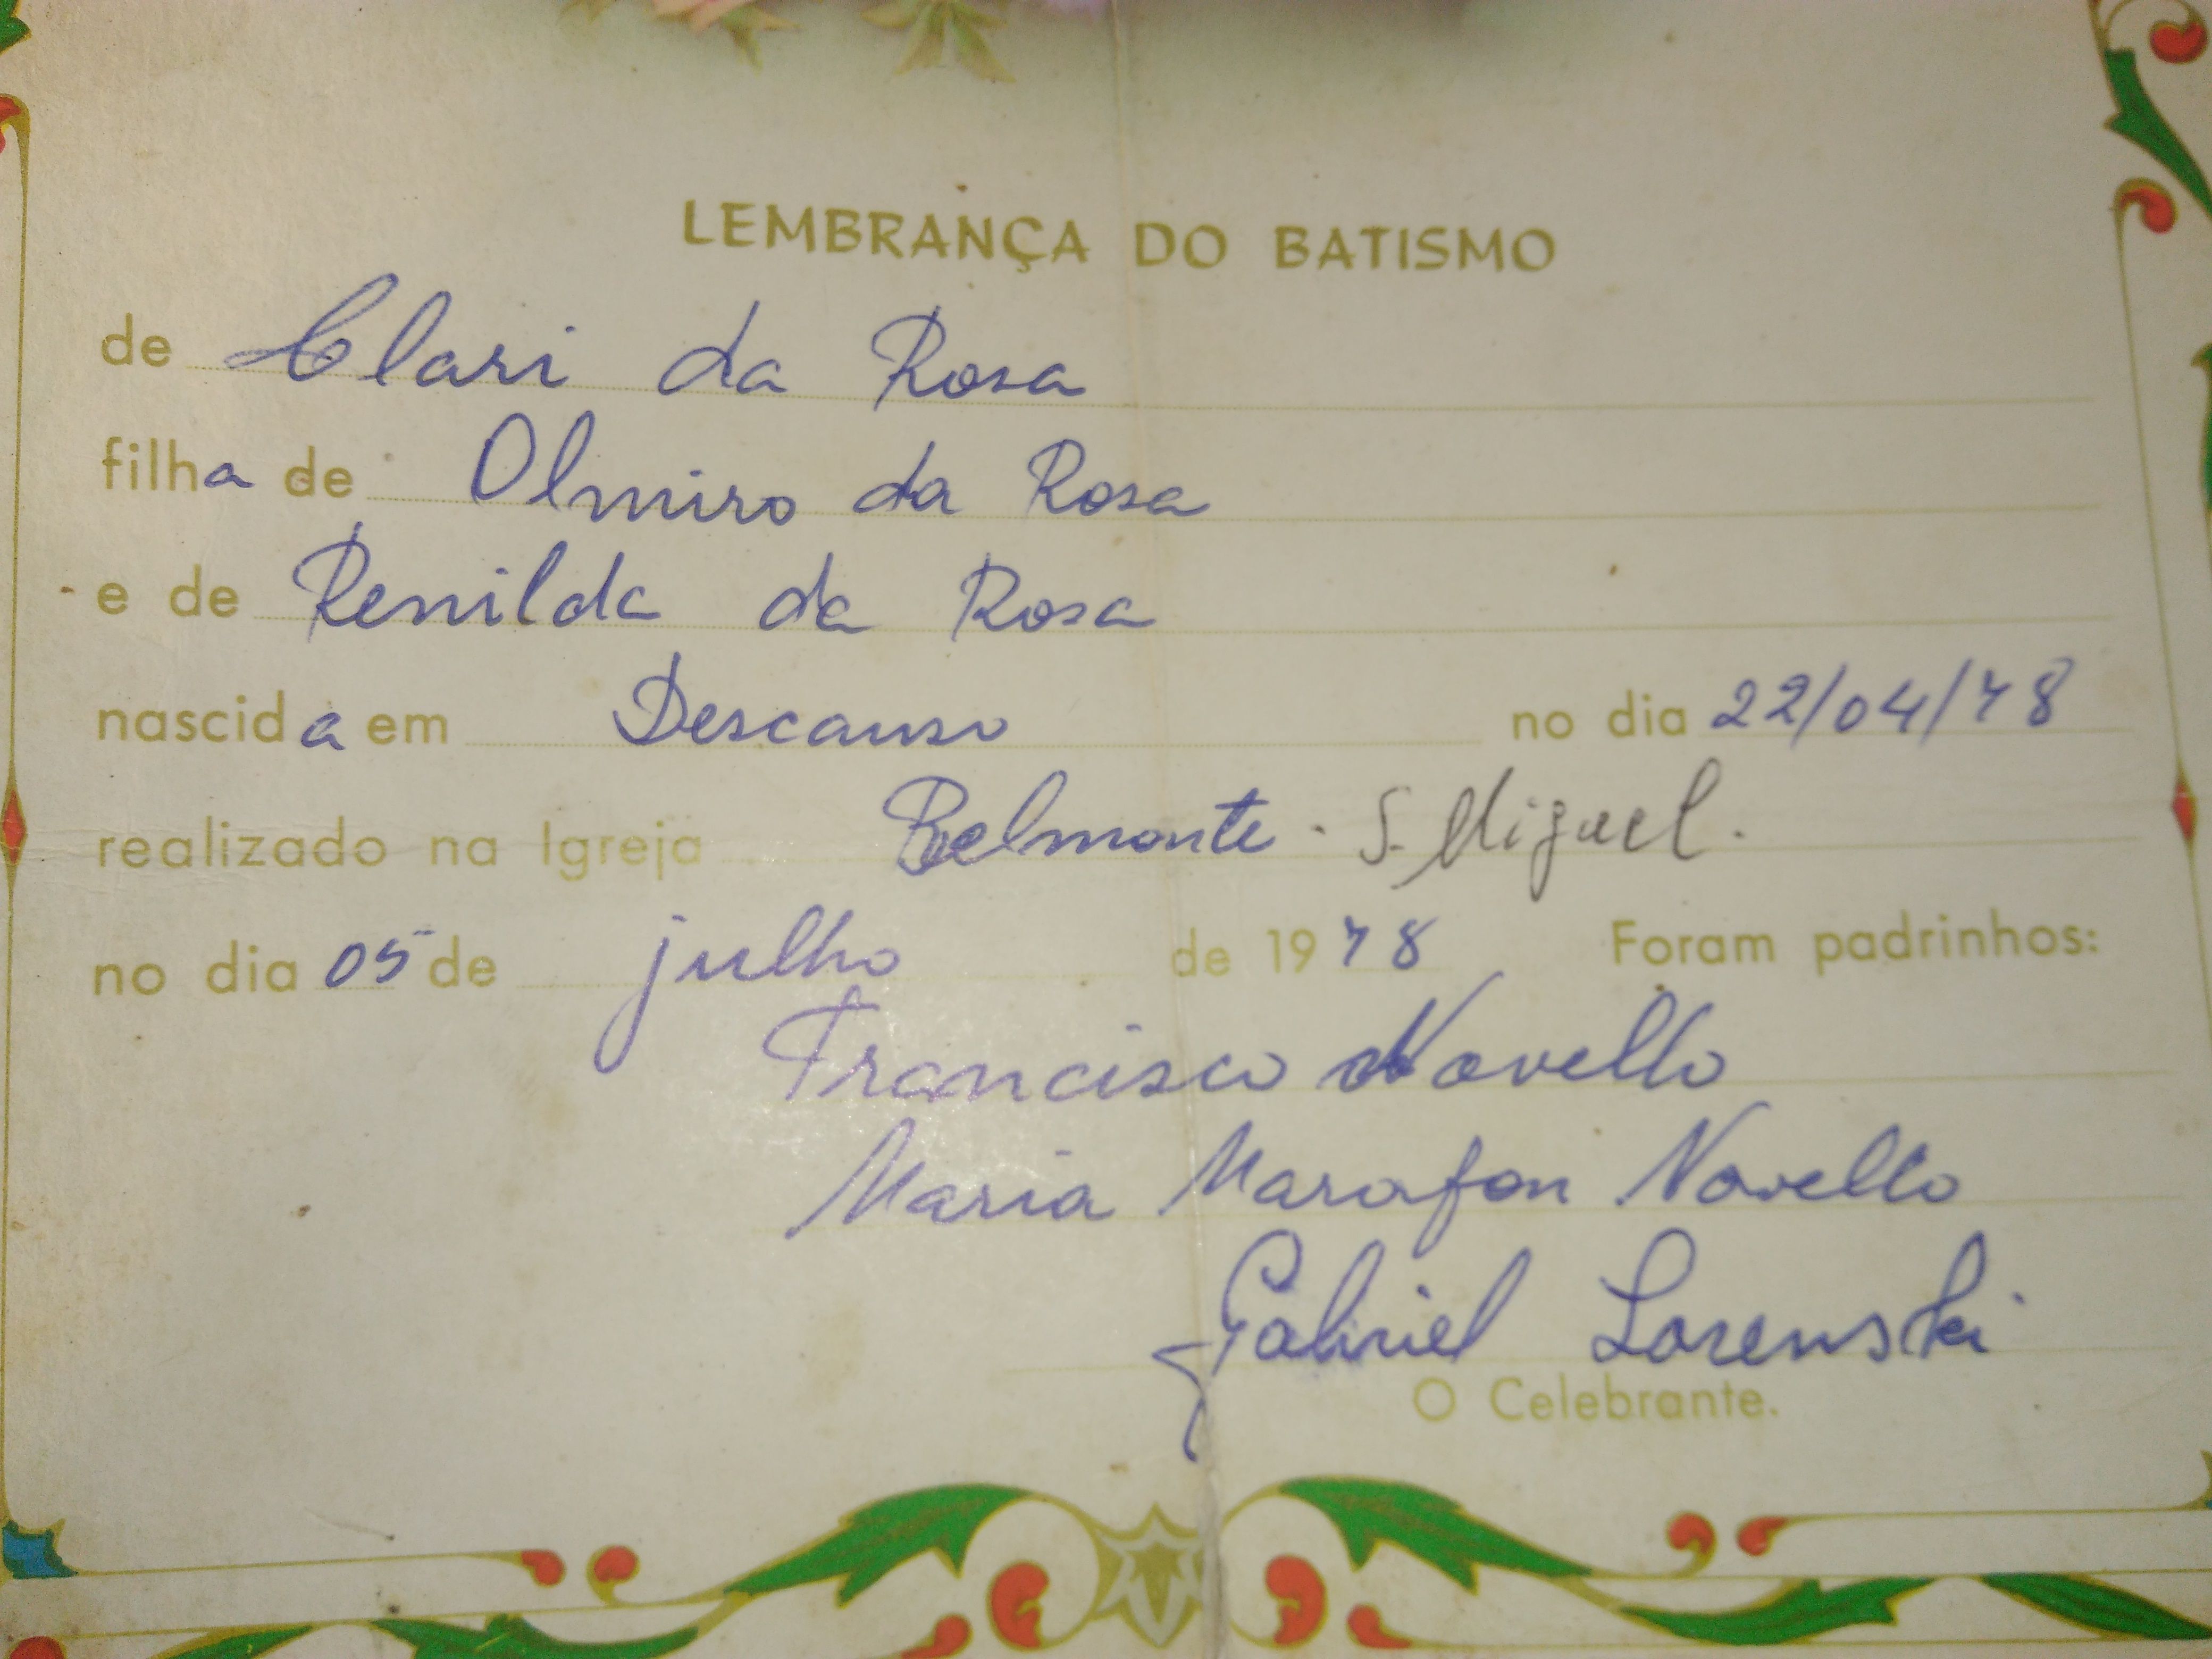 LEMBRANÇA DO BATISMO
de Clari da Rosa
filha de Olmiro da Rosa
e de Renilda da Rosa
nascida em Descanso no dia 22/04/78
realizado na Igreja Belmonte - S. Miguel.
no dia 05 de julho de 1978 Foram padrinhos:
Francisco Novello
Maria Marafon Novello
Gabriel Lorenski
O Celebrante.